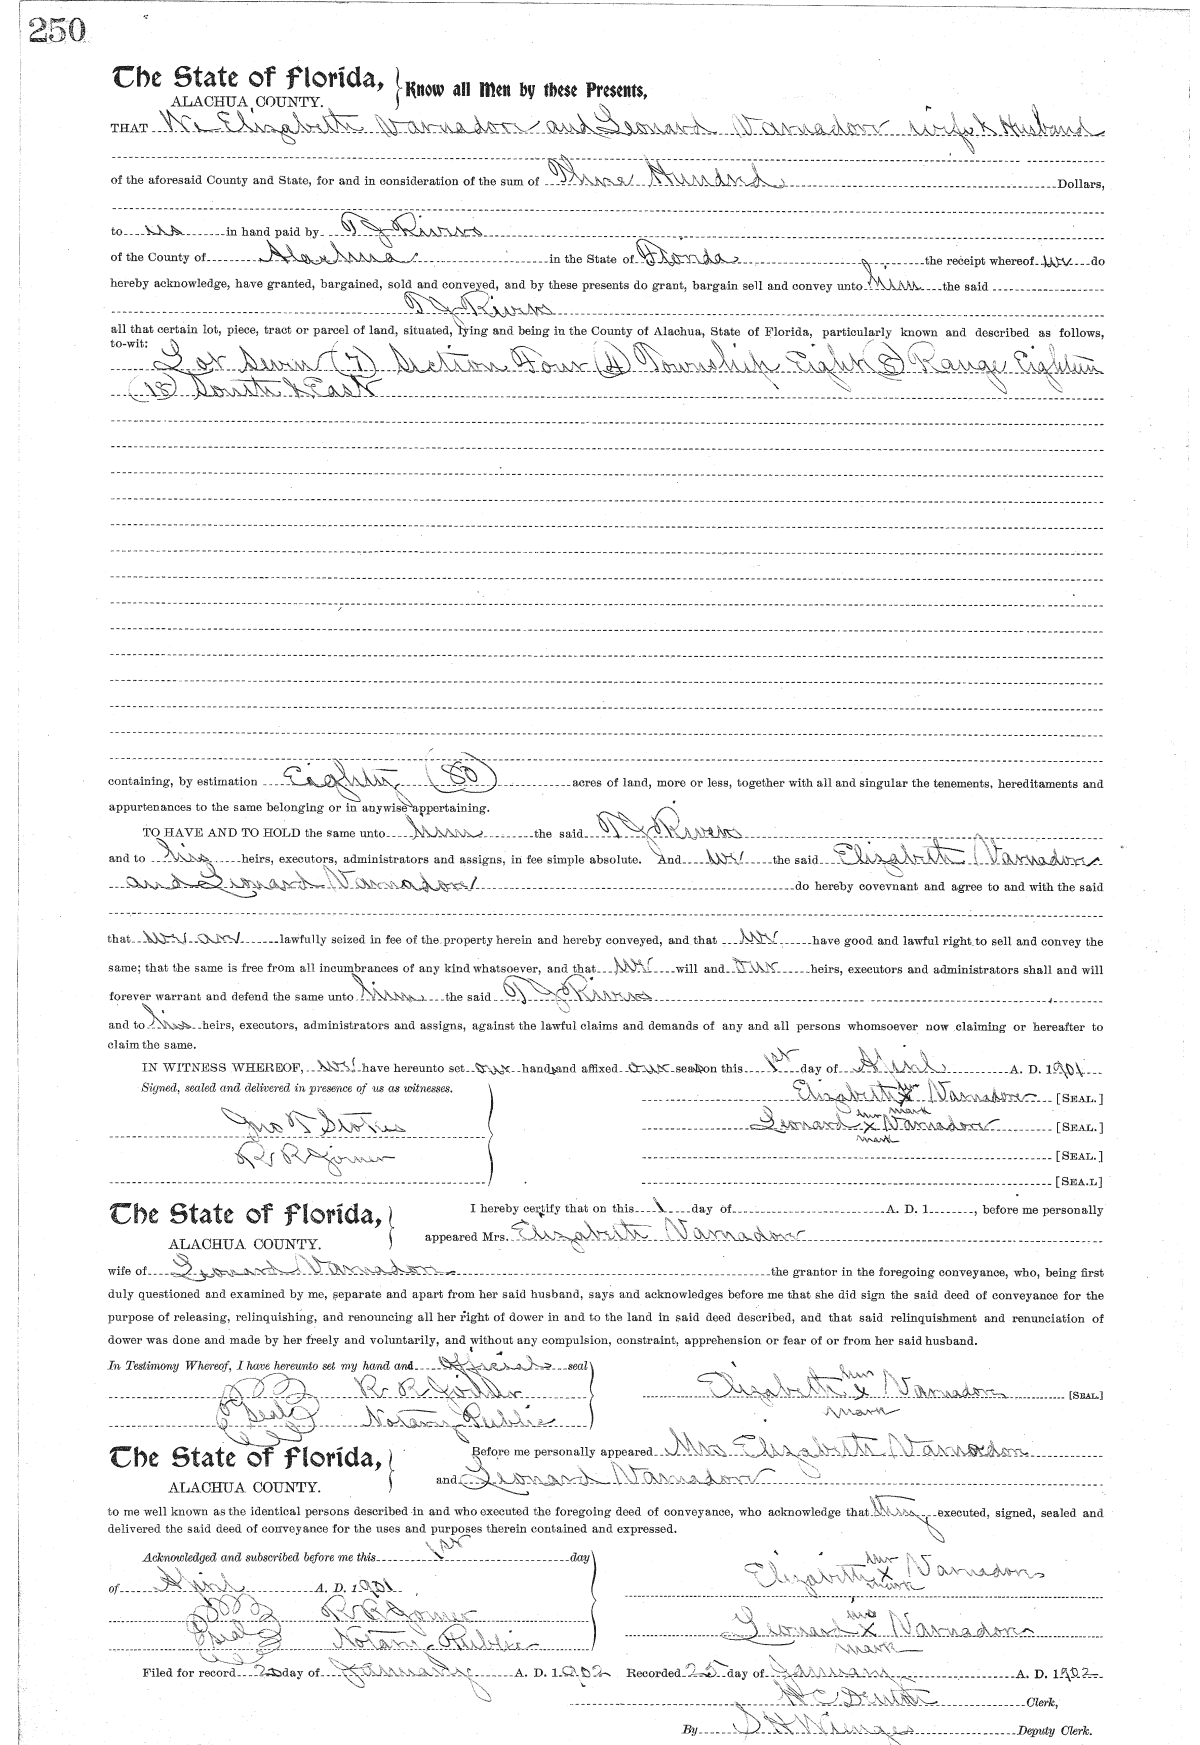 250
The State of Florida, Know all Men by these Presents,
ALACHUA COUNTY.
THAT We Elizabeth Varnadon and Leonard Varnadon wife & Husband
of the aforesaid County and State, for and in consideration of the sum of Three Hundred Dollars,
to us in hand paid by T J Rivers
of the County of Alachua in the State of Florida the receipt whereof we do
hereby acknowledge, have granted, bargained, sold and conveyed, and by these presents do grant, bargain sell and convey unto him the said
T J Rivers
all that certain lot, piece, tract or parcel of land, situated, lying and being in the County of Alachua, State of Florida, particularly known and described as follows,
to-wit:
Lot Seven (7) Section Four (4) Township Eight (8) Range Eighteen
(18) South & East
containing, by estimation Eighty (80) acres of land, more or less, together with all and singular the tenements, hereditaments and
appurtenances to the same belonging or in anywise appertaining.
TO HAVE AND TO HOLD the same unto him the said T J Rivers
and to his heirs, executors, administrators and assigns, in fee simple absolute. And we the said Elizabeth Varnadon
and Leonard Varnadon do hereby covevnant and agree to and with the said
that we are lawfully seized in fee of the property herein and hereby conveyed, and that we have good and lawful right to sell and convey the
same; that the same is free from all incumbrances of any kind whatsoever, and that we will and our heirs, executors and administrators shall and will
forever warrant and defend the same unto him the said T J Rivers
and to his heirs, executors, administrators and assigns, against the lawful claims and demands of any and all persons whomsoever now claiming or hereafter to
claim the same.
IN WITNESS WHEREOF, we have hereunto set our hands and affixed our seals on this 1st day of April A. D. 1901
Signed, sealed and delivered in presence of us as witnesses.
Elizabeth her x mark Varnadon [SEAL.]
Jno W Stokes
Leonard his x mark Varnadon [SEAL.]
R. R [SEAL.]
[SEA.L]
The State of Florida, I hereby certify that on this 1 day of A. D. 1 , before me personally
ALACHUA COUNTY. appeared Mrs. Elizabeth Varnadon
wife of Leonard Varnadon the grantor in the foregoing conveyance, who, being first
duly questioned and examined by me, separate and apart from her said husband, says and acknowledges before me that she did sign the said deed of conveyance for the
purpose of releasing, relinquishing, and renouncing all her right of dower in and to the land in said deed described, and that said relinquishment and renunciation of
dower was done and made by her freely and voluntarily, and without any compulsion, constraint, apprehension or fear of or from her said husband.
In Testimony Whereof, I have hereunto set my hand and official seal
R. R Elizabeth her x mark Varnadon [SEAL]
Seal Notary Public
The State of Florida, Before me personally appeared Mrs Elizabeth Varnadon
ALACHUA COUNTY. and Leonard Varnadon
to me well known as the identical persons described in and who executed the foregoing deed of conveyance, who acknowledge that they executed, signed, sealed and
delivered the said deed of conveyance for the uses and purposes therein contained and expressed.
Acknowledged and subscribed before me this 1st day
of April A. D. 1901
Elizabeth her x mark Varnadon
R. R
Seal Notary Public
Leonard his x mark Varnadon
Filed for record 25 day of January A. D. 1902 Recorded 25 day of January A. D. 1902
H C Denton Clerk,
By S H Wienges Deputy Clerk.